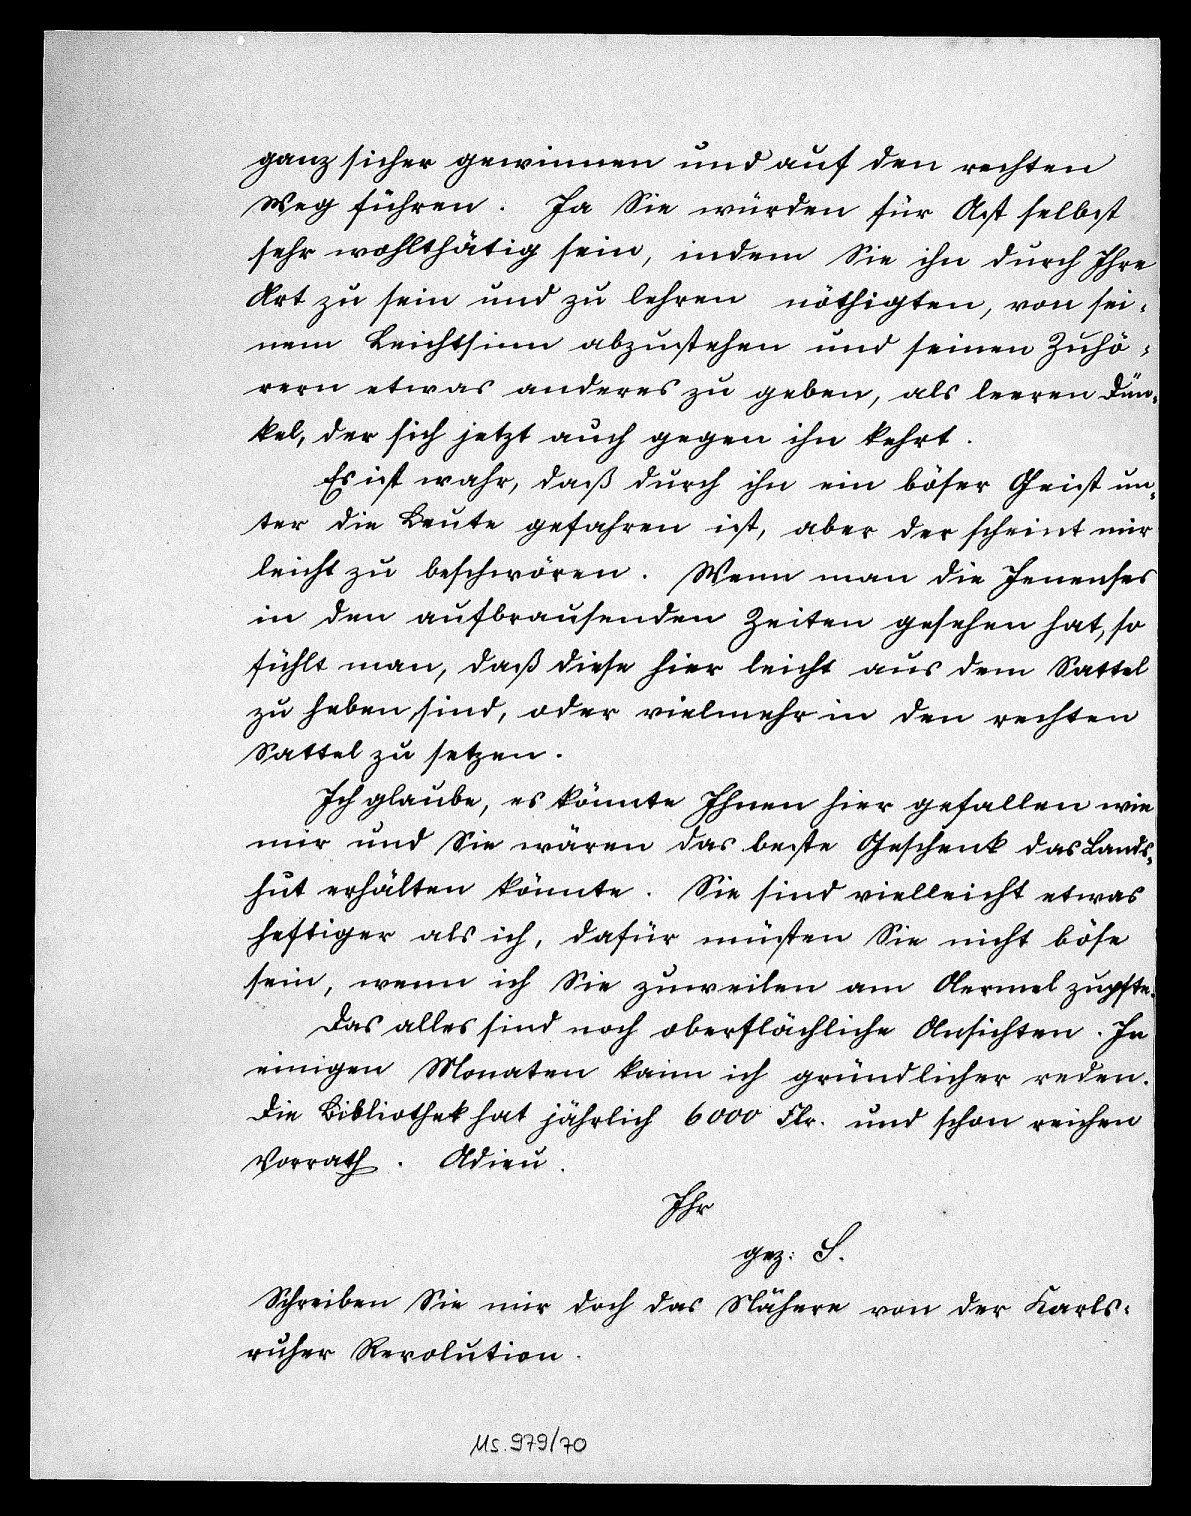 ganz sicher gewinnen und auf den rechten
Weg führen. Ja Sie würden für Ast selbst
sehr wohlthätig sein, indem Sie ihn durch Ihre
Art zu sein und zu lehren nöthigten, von sei-
nem Leichtsinn abzustehen und seinen Zuhö-
rern etwas anderes zu geben, als leeren Dün-
kel, der sich jetzt auch gegen ihn kehrt.
Es ist wahr, daß durch ihn ein böser Geist un-
ter die Leute gefahren ist, aber der scheint mir
leicht zu beschwören. Wenn man die Jenenses
in den aufbrausenden Zeiten gesehen hat, so
fühlt man, daß diese hier leicht aus dem Sattel
zu heben sind, oder vielmehr in den rechten
Sattel zu setzen.
Ich glaube, es könnte Ihnen hier gefallen wie
mir und Sie wären das beste Geschenk das Lands-
hut erhälten könnte. Sie sind vielleicht etwas
heftiger als ich, dafür müsten Sie nicht böse
sein, wenn ich Sie zuweilen am Aermel zupfte.
Das alles sind noch oberflächliche Ansichten. In
einigen Monaten kann ich gründlicher reden.
Die Bibliothek hat jährlich 6000 Flr. und schon reichen
Vorrath. Adieu.
Ihr
gez: S.
Schreiben Sie mir doch das Nähere von der Karls-
ruher Revolution.
Ms. 979/70